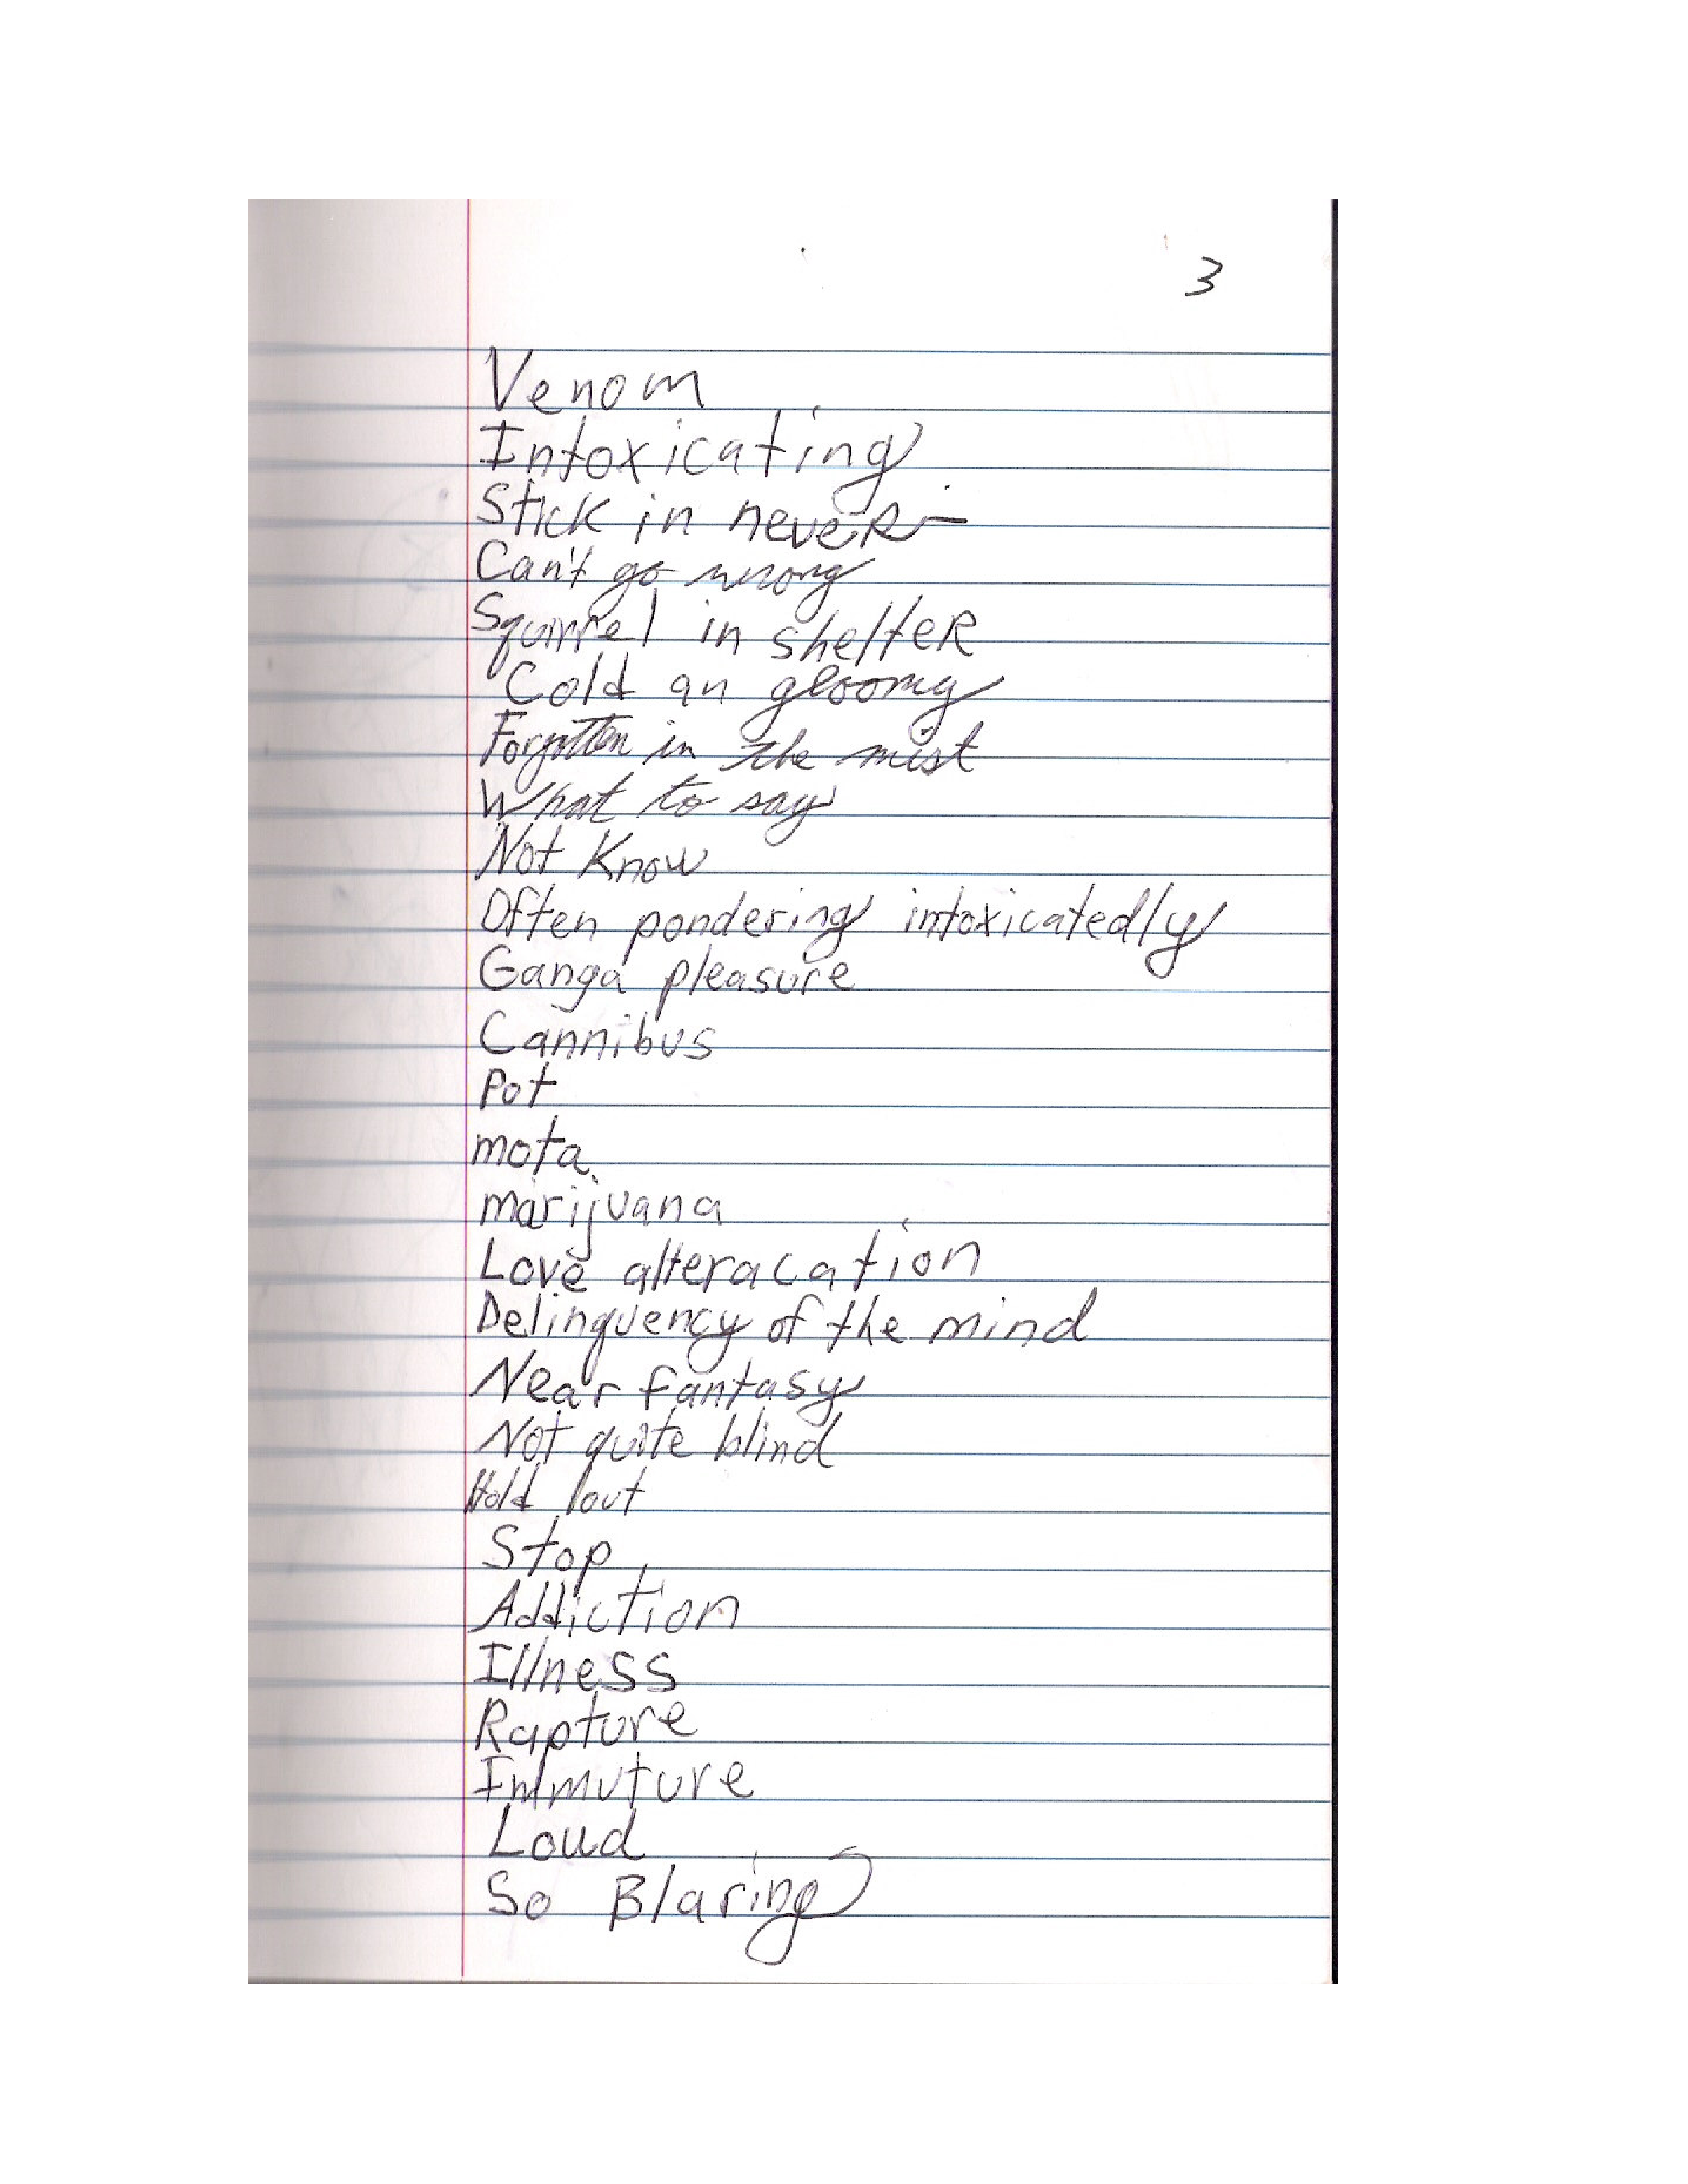 3
Venom
Intoxicating
Stick in never
Can't go wrong
Squirrel in shelter
Cold an gloomy
Forgotten in the mist
What to say
Not Know
Often pondering intoxicatedly
Ganga pleasure
Cannibus
Pot
mota
marijuana
Love alteracation
Delinquency of the mind
Near fantasy
Not quite blind
Hold out
Stop
Addiction
Illness
Rapture
Immuture
Loud
So Blaring